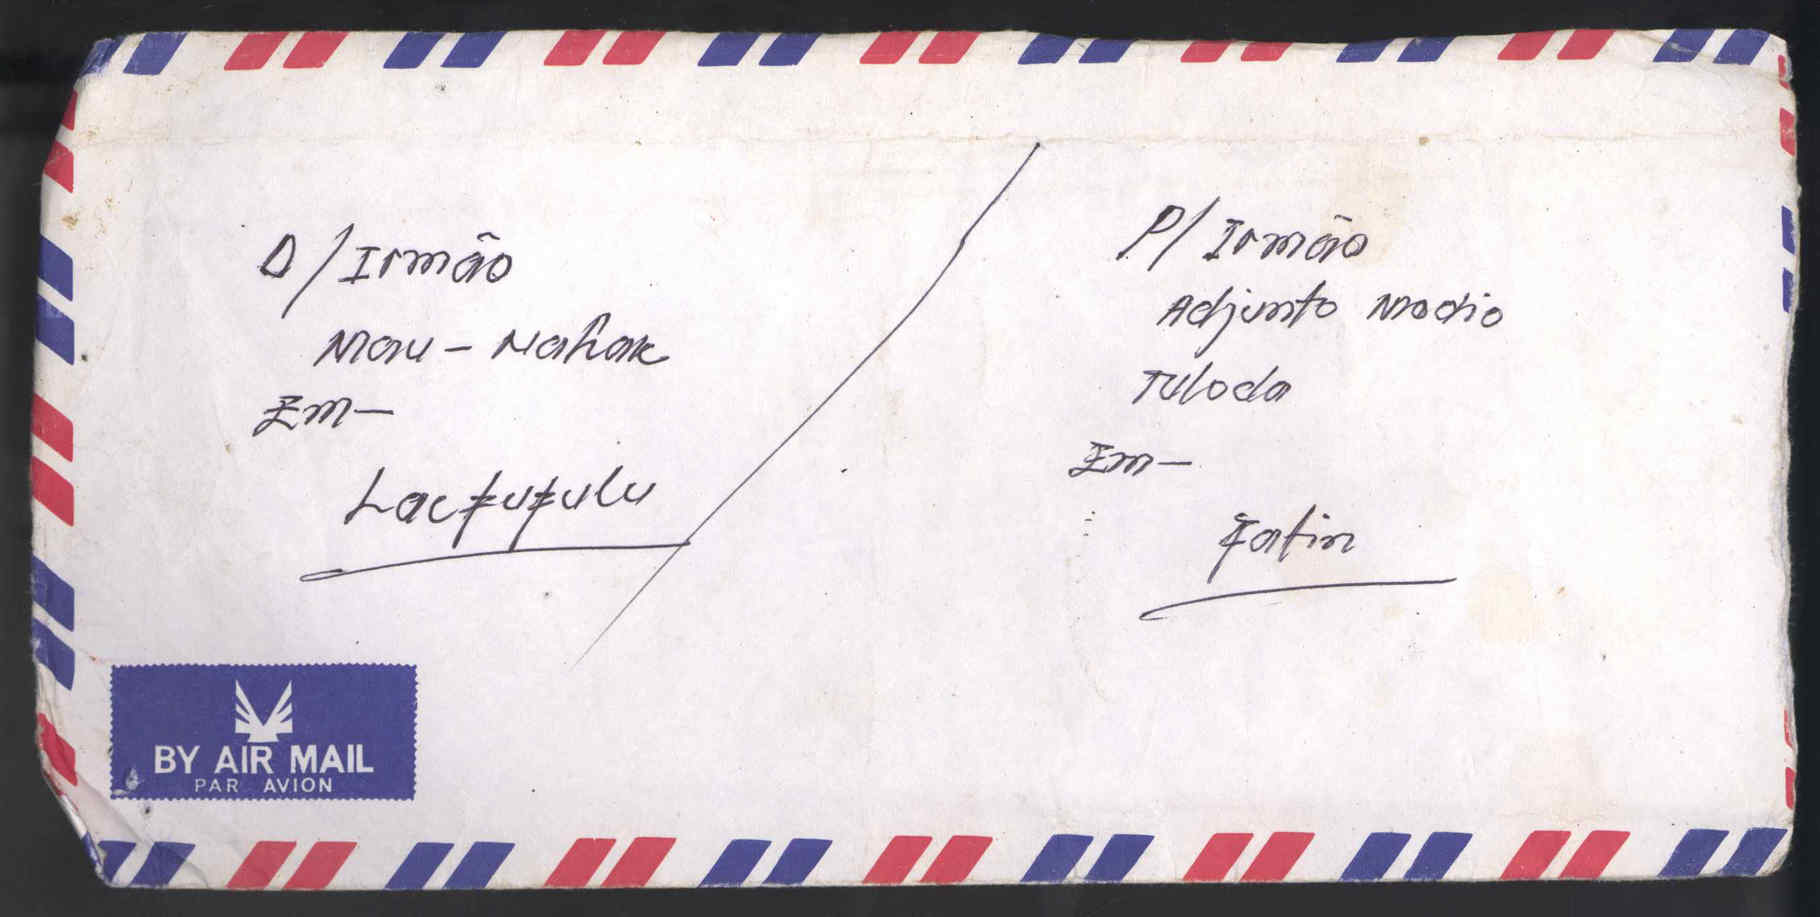 D/Irmão
Mau-Nahak
Em-
Lacfufulu
P/Irmão
Adjunto Médio
Tuloda
Em-
Fatin
BY AIR MAIL
PAR AVION